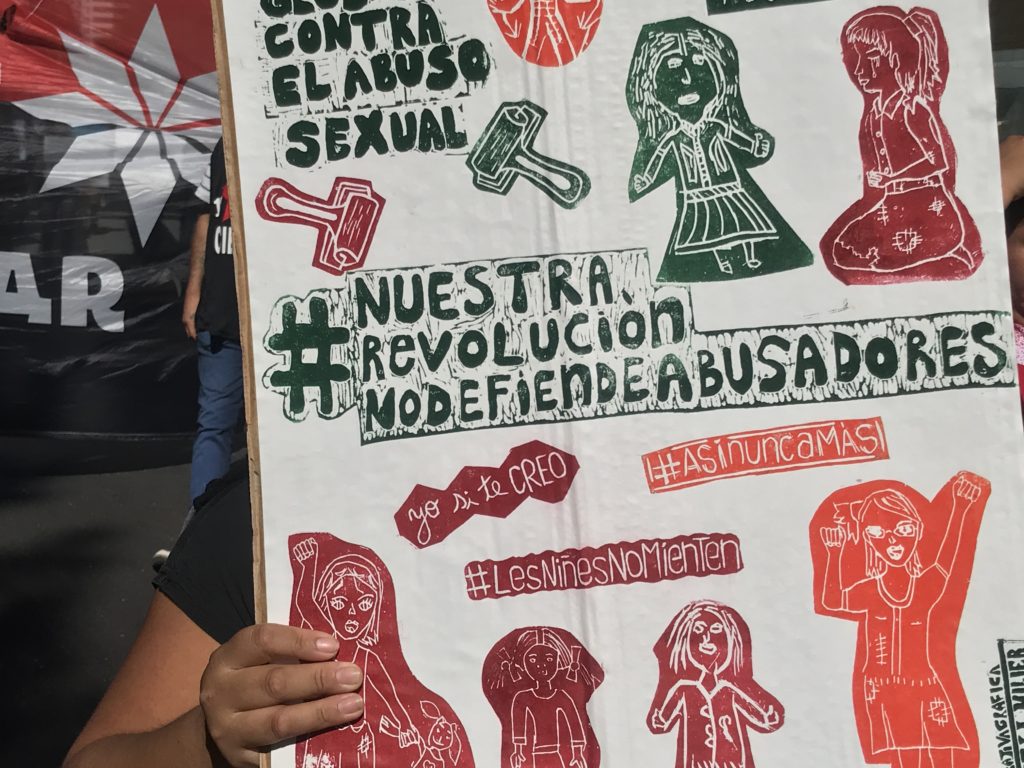 CONTRA
EL ABUSO
SEXUAL
#NUESTRA
REVOLUCIÓN
NO DEFIENDE ABUSADORES
yo si te CREO
#ASÍNUNCAMÁS
#LESNIÑESNOMIENTEN
AR
CI
MUJER